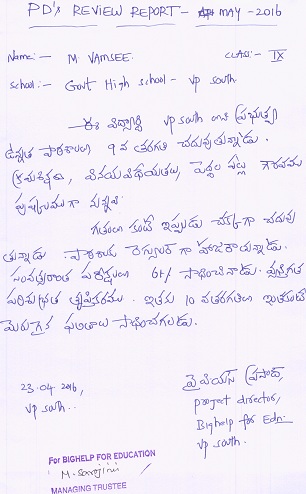 PD's REVIEW REPORT - MAY - 2016
Name:- M VAMSEE. CLASS:- IX
School:- Govt High school - vp south
ఈ విద్యార్థి vp south లోని ప్రభుత్వ
ఉన్నత పాఠశాలలో 9 వ తరగతి చదువుతున్నాడు.
క్రమశిక్షణ, వినయవిధేయతలు, పెద్దల పట్ల గౌరవము
గా
గతంలో కంటే ఇప్పుడు చక్కగా చదువు
తున్నాడు. పాఠశాలకు రెగ్యులర్ గా హాజరాయన్నాడు.
సంవత్సరాంత పరీక్షలలో 61% సాధించినాడు.
ఇతడు 10 వతరగతిలో ఇంతకంటే
మెరుగైన ఫలితాలు సాధించగలడు.
23.04.2016,
vp south.
ప్రసాద్,
project director,
Bighelp for Edn.
vp south.
For BIGHELP FOR EDUCATION
M. Sarojini
MANAGING TRUSTEE